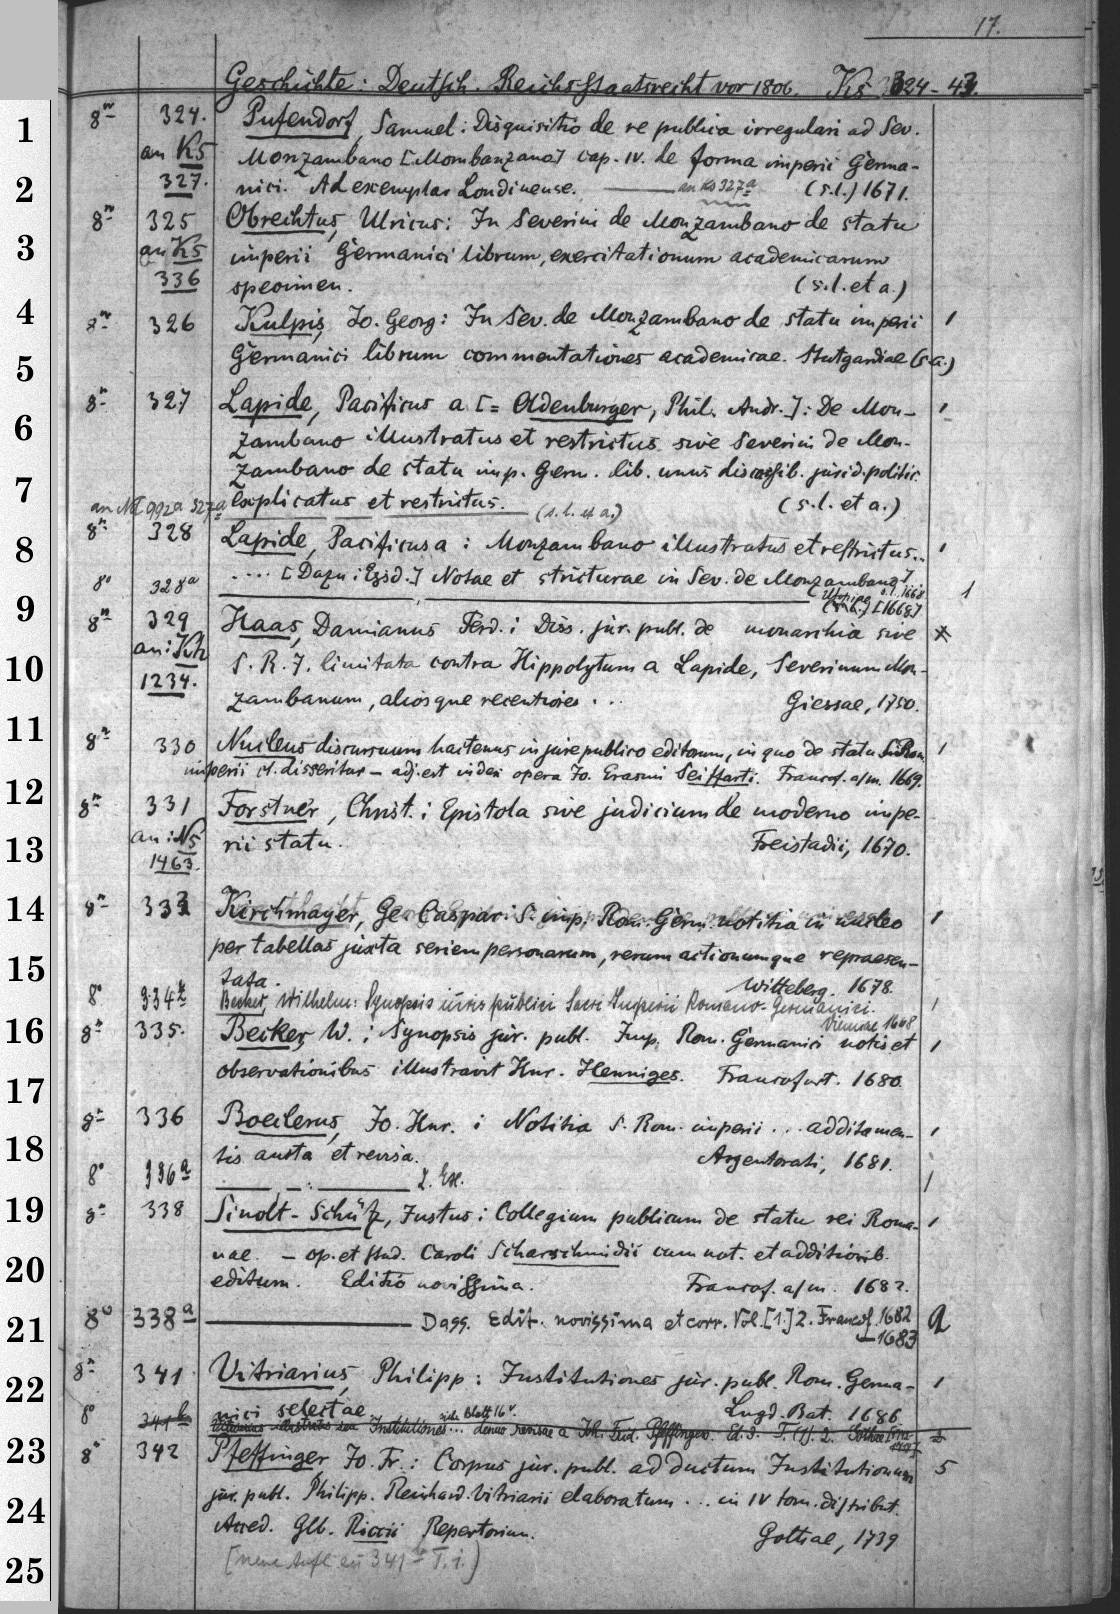 17.
Geschichte: Deutsch. Reichsstaatsrecht vor 1806. Ks 324-43.
1 8° 324. Pufendorf, Samuel: Disquisitio de re publica irregulari ad Sev.
an Ks Monzambano [Mombanzano] cap. IV. de forma imperii Germa-
2 327. nici. Ad exemplar Londinense. — an Ks 327a (s.l.) 1671.
8° 325 Obrechtus, Ulricus: In Severini de Monzambano de statu
3 an Ks imperii Germanici librum, exercitationum academicarum
336 specimen. (s.l. et a.)
4 8° 326 Kulpis, Jo. Georg: In Sev. de Monzambano de statu imperii 1
5 Germanici librum commentationes academicae. Stutgardiae (s.a.)
8° 327 Lapide, Pacificus a [= Oldenburger, Phil. Andr.]: De Mon- 1
6 zambano illustratus et restrictus sive Severini de Mon-
7 zambano de statu imp. Germ. lib. unus discursib. jurid. politic.
327a explicatus et restrictus. — (s.l. et a.) (s.l. et a.)
8 8° 328 Lapide, Pacificus a: Monzambano illustratus et restrictus... 1
8° 328a .... [Dazu: Egsd.] Notae et stricturae in Sev. de Monzambano 1
9 8° 329 Haas, Damianus Ferd.: Diss. jur. publ. de monarchia sive
an: Kh S. R. J. limitata contra Hippolytum a Lapide, Severinum Mon-
10 1234. zambanum, aliosque recentiores .. Giessae, 1750.
11 8° 330 Nucleus discursuum hactenus in jure publico editorum, in quo de statu 1
imperii et. disseritur — adj. est index opera Jo. Erasmi Seiffarti. Francof. a/m. 1669.
12 8° 331 Forstner, Christ.: Epistola sive judicium de moderno impe-
13 an: Ns rii statu. Freistadii, 1670.
1463.
14 8° 333 Kirchmayer, Ge. Caspar: S. imp. Rom. Germ. notitia in nucleo 1
per tabellas juxta seriem personarum, rerum actionumque repraesen-
15 tata. Witteberg. 1678.
8° 334 Becker, Wilhelm: Synopsis iuris publici Sacri Imperii Romano-Germanici. 1
1648
16 8° 335. Becker, W.: Synopsis jur. publ. Imp. Rom. Germanici notis et 1
17 observationibus illustravit Hnr. Henniges. Francofurt. 1680.
8° 336 Boeclerus, Jo. Hnr.: Notitia S. Rom. imperii ... additamen- 1
18 tis aucta et revisa. Argentorati, 1681.
8° 336a — 2. Ex. 1
19 8° 338 Sinolt-Schütz, Justus: Collegium publicum de statu rei Roma- 1
nae. — op. et stud. Caroli Scharschmidii cum not. et additionib.
20 editum. Editio novissima. Francof. a/m. 1682.
21 8° 338a — Dass. Edit. novissima et corr. Vol. [1.] 2. Francof. 1682 2
—1683
22 8° 341 Vitriarius, Philipp: Institutiones jur. publ. Rom. Germa- 1
nici selectae Lugd. Bat. 1686
8° 341b siehe Blatt 16v. Institutiones ...
23 8° 342 Pfeffinger, Jo. Fr.: Corpus jur. publ. ad ductum Institutionum 5
24 jur. publ. Philipp. Reinhard. Vitriarii elaboratum ... in IV tom. distribut.
Acced. Glb. Riccii Repertorium. Gothae, 1739
25 [neue Aufl. 341b T. 1.]